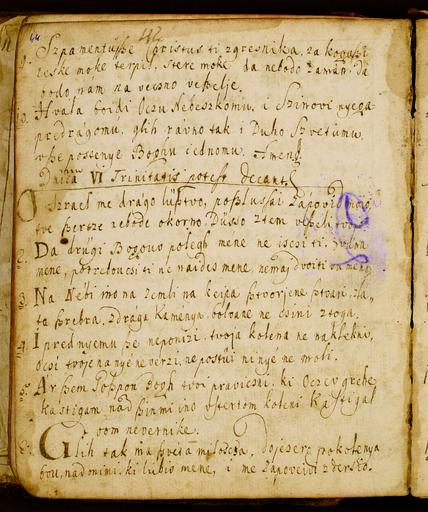 44
9. Szpamentuÿ se Cristus ti zgresnika, za koga si
teske moke terpel, stere moke da nebodo zaman, da
bodo nam na vecsno veszelje.
10. Hvala boidi Oczu Nebeszkomu, i Szinovi nyega
predragomu, glih ravno tak i Duho Szvetumu
vsze poszenye Boghu jednomu. Amen
Dnica VI Trinitatis potest decant
O Iszrael me drago lüsztvo, poszlussai Zápovid
tve szercze nebode okorno, Düsso z tem veszeli
2. Da drügi Bogouv poleg mene ne iscsi ti.
mene, potreboucsi ti ne naides mene, nemaj dvoiti va meny
3. Na Nébi ino na zemli na keipa sztvorjene sztvari,
ta szrebra, zdraga kamenya, bolvane ne csini z toga.
4. I pred nyemu sze neponizi, tvoja kolena ne naklekni,
ocsi tvoje na nye ne verzi, ne postüi ni nye ne moli.
5. Ar szem Goszpon Bogh tvoi pravicsni, ki Oczev grehe
kastigam nad szinmi ino
nevernike.
6. Glih tak ma szveta miloscsa, do jezero pokolenya
bou, nad onimi, ki lübio mene, i me Zápoveivi z derséo.